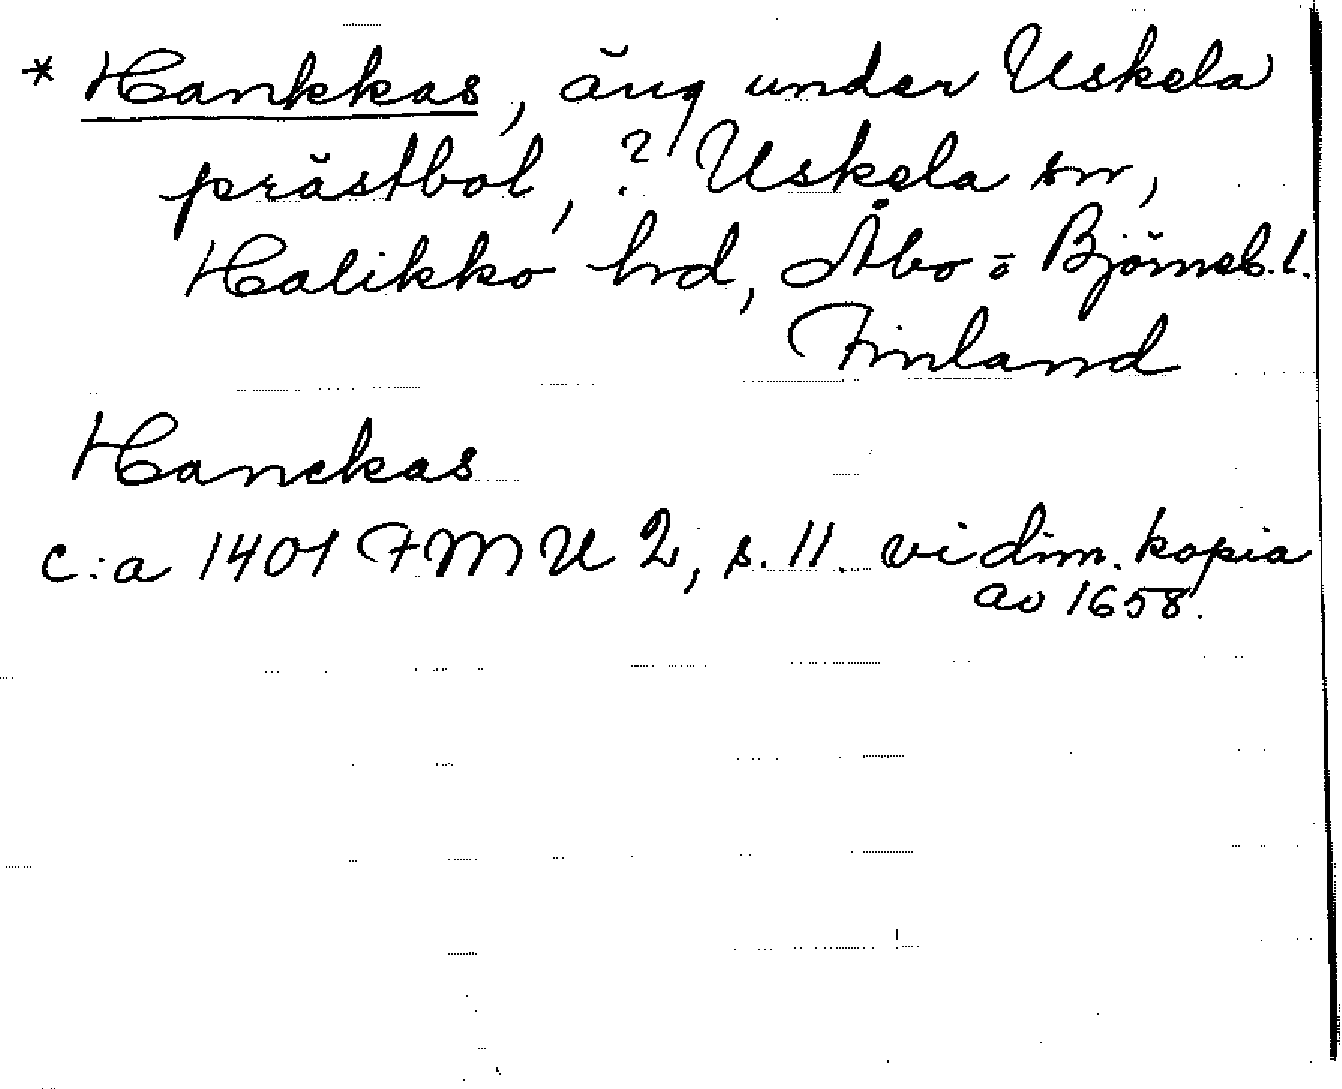 * Hankkas, äng under Uskela
prästbol, ? Uskela sn,
Halikko hrd, Åbo o Björneb. l.
Finland
Hanckas
c:a 1401 FMU 2, s. 11. vidim. kopia
av 1658.